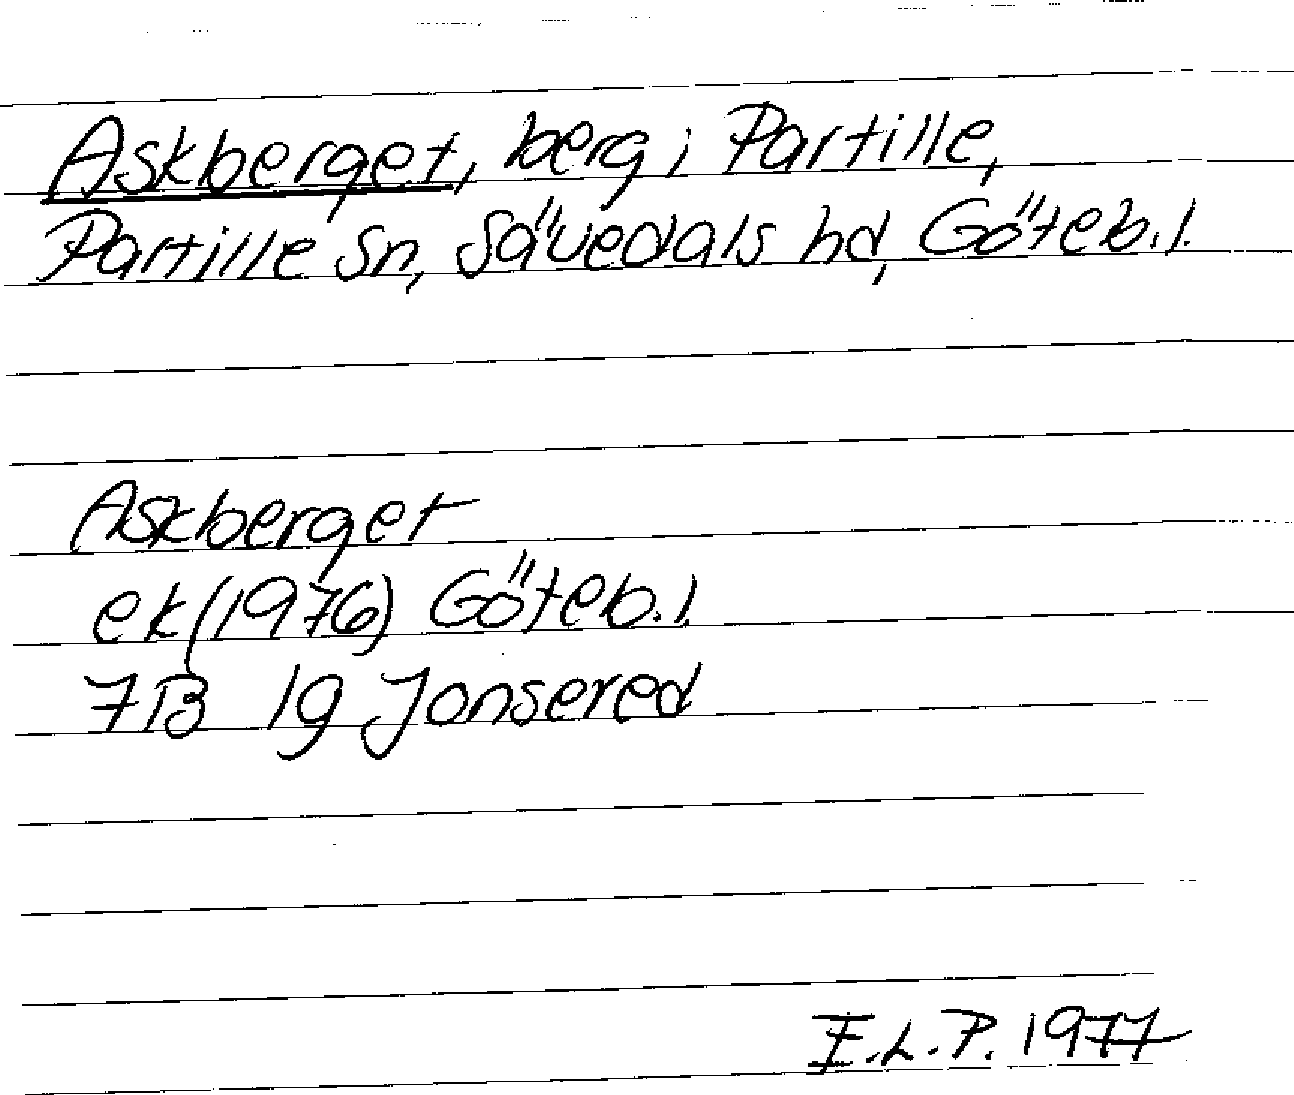 Askberget, berg i Partille,
Partille sn, Sävedals hd, Göteb. l.
Askberget
ek (1976) Göteb. l.
7B 1g Jonsered
E.L.P. 1977